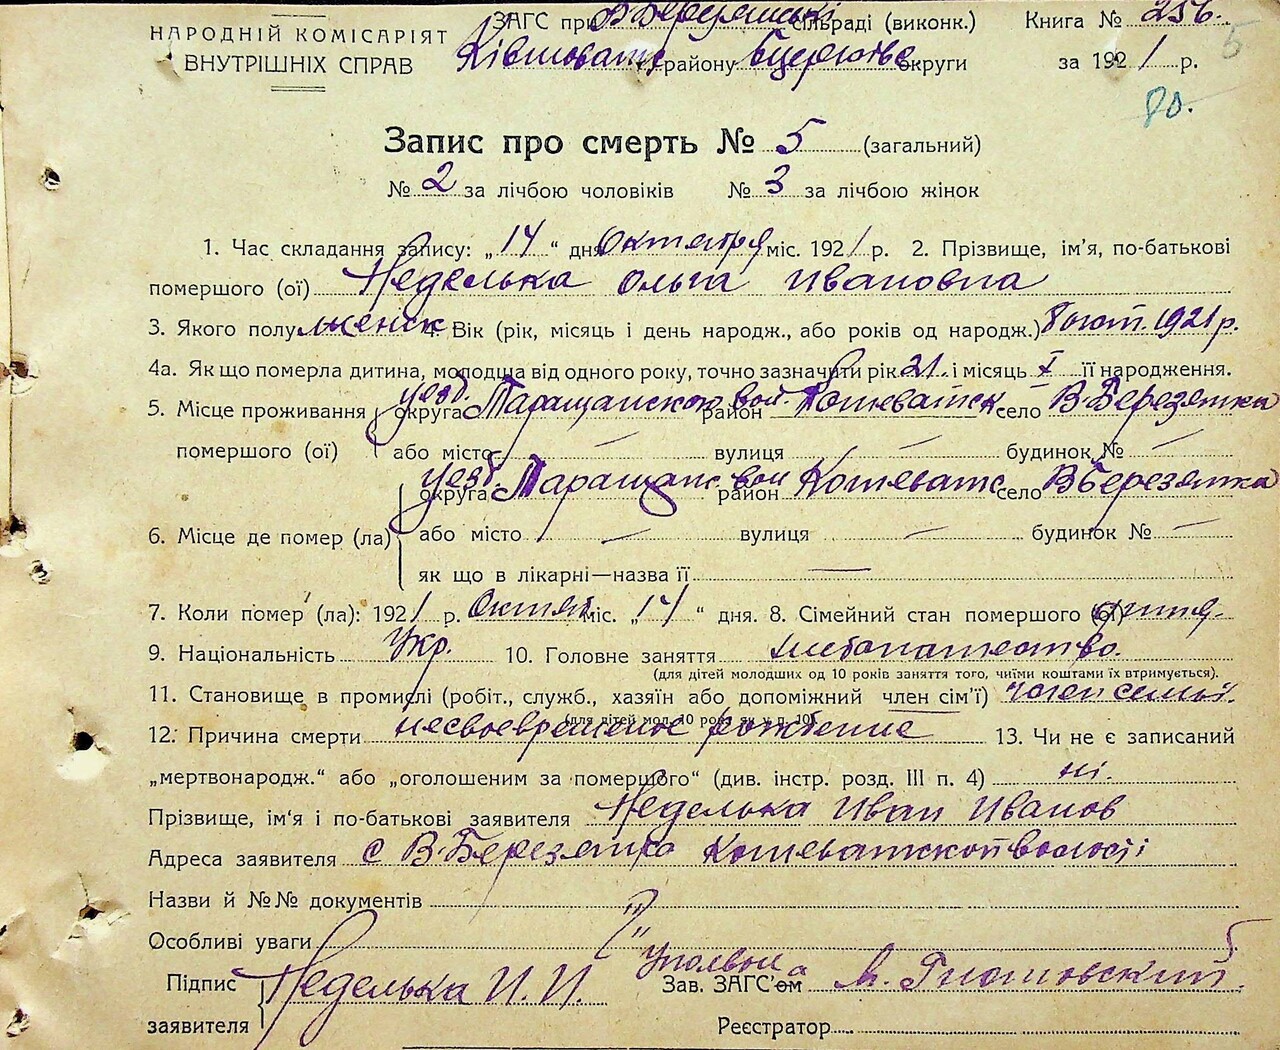 НАРОДНІЙ КОМІСАРІЯТ
ВНУТРІШНІХ СПРАВ
ЗАГС при В Березянські сільраді (виконк.)
району округи
Книга № 256.
за 1921 р.
5
80.
Запис про смерть № 5 (загальний)
№ 2 за лічбою чоловіків № 3 за лічбою жінок
1. Час складання запису: „14“ дня Октября міс. 1921 р. 2. Прізвище, ім’я, по-батькові
помершого (ої) Неделька Ольга Ивановна
3. Якого полу женск 4. Вік (рік, місяць і день народж., або років од народж.) 8 окт. 1921 р.
4а. Як що померла дитина, молодша від одного року, точно зазначити рік 21 і місяць X її народження.
5. Місце проживання помершого (ої) округа уезд. Таращанского район вол. село В. Березянка
або місто — вулиця — будинок № —
6. Місце де помер (ла) округа уезд. Таращанс район вол Кошеватс село В Березянка
або місто — вулиця — будинок № —
як що в лікарні—назва її —
7. Коли помер (ла): 1921 р. Октяб міс. „14“ дня. 8. Сімейний стан помершого (ої)
9. Національність Укр. 10. Головне заняття хлебопашество.
(для дітей молодших од 10 років заняття того, чиїми коштами їх втримується).
11. Становище в промислі (робіт., служб., хазяїн або допоміжний член сім’ї) член семьи.
(для дітей мол. 10 років як у п. 10).
12. Причина смерти несвоевременое рождение 13. Чи не є записаний
„мертвонародж.“ або „оголошеним за помершого“ (див. інстр. розд. III п. 4) ні.
Прізвище, ім’я і по-батькові заявителя Неделька Иван Иванов
Адреса заявителя с В. Березянка Кошеватской волості
Назви й №№ документів
Особливі уваги
Підпис заявителя Неделька И. И.
Зав. ЗАГС’ом
Реєстратор